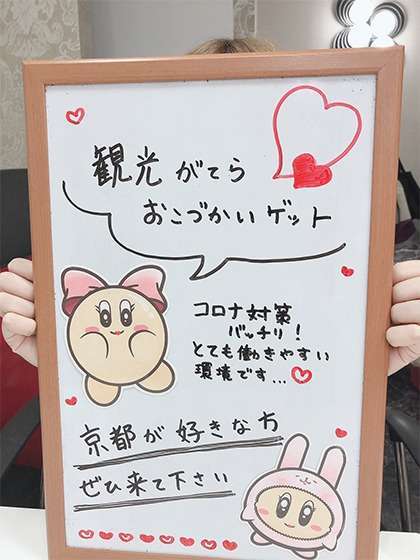 観光がてら
おこづかいゲット
コロナ対策
バッチリ!
とても働きやすい
環境です...
京都が好きな方
ぜひ来て下さい